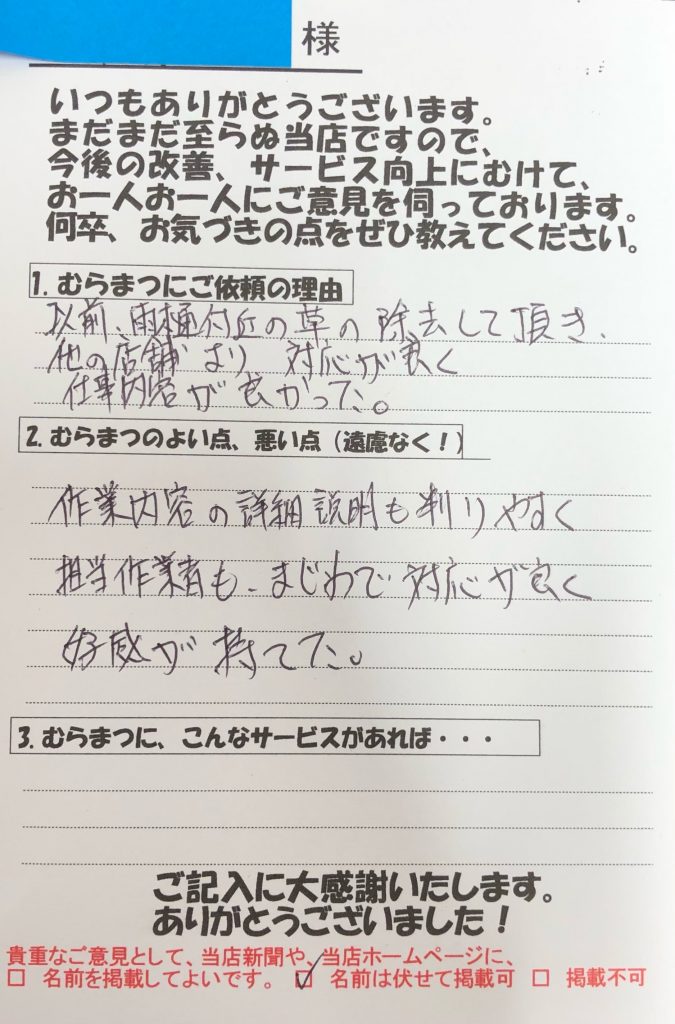 様
いつもありがとうございます。
まだまだ至らぬ当店ですので、
今後の改善、サービス向上にむけて、
お一人お一人にご意見を伺っております。
何卒、お気づきの点をぜひ教えてください。
1. むらまつにご依頼の理由
以前、雨樋付近の草の除去して頂き、
他の店舗より 対応が良く
仕事内容が良かった。
2. むらまつのよい点、悪い点（遠慮なく！）
作業内容の詳細説明も判りやすく
担当作業者も、まじめで対応が良く
好感が持てた。
3. むらまつに、こんなサービスがあれば・・・
ご記入に大感謝いたします。
ありがとうございました！
貴重なご意見として、当店新聞や、当店ホームページに、
□ 名前を掲載してよいです。 ☑ 名前は伏せて掲載可 □ 掲載不可